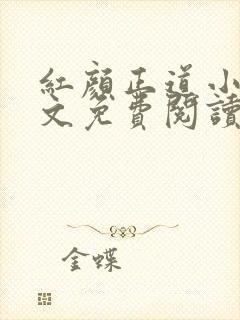 紅顏正道小
文免費閱讀
金蝶